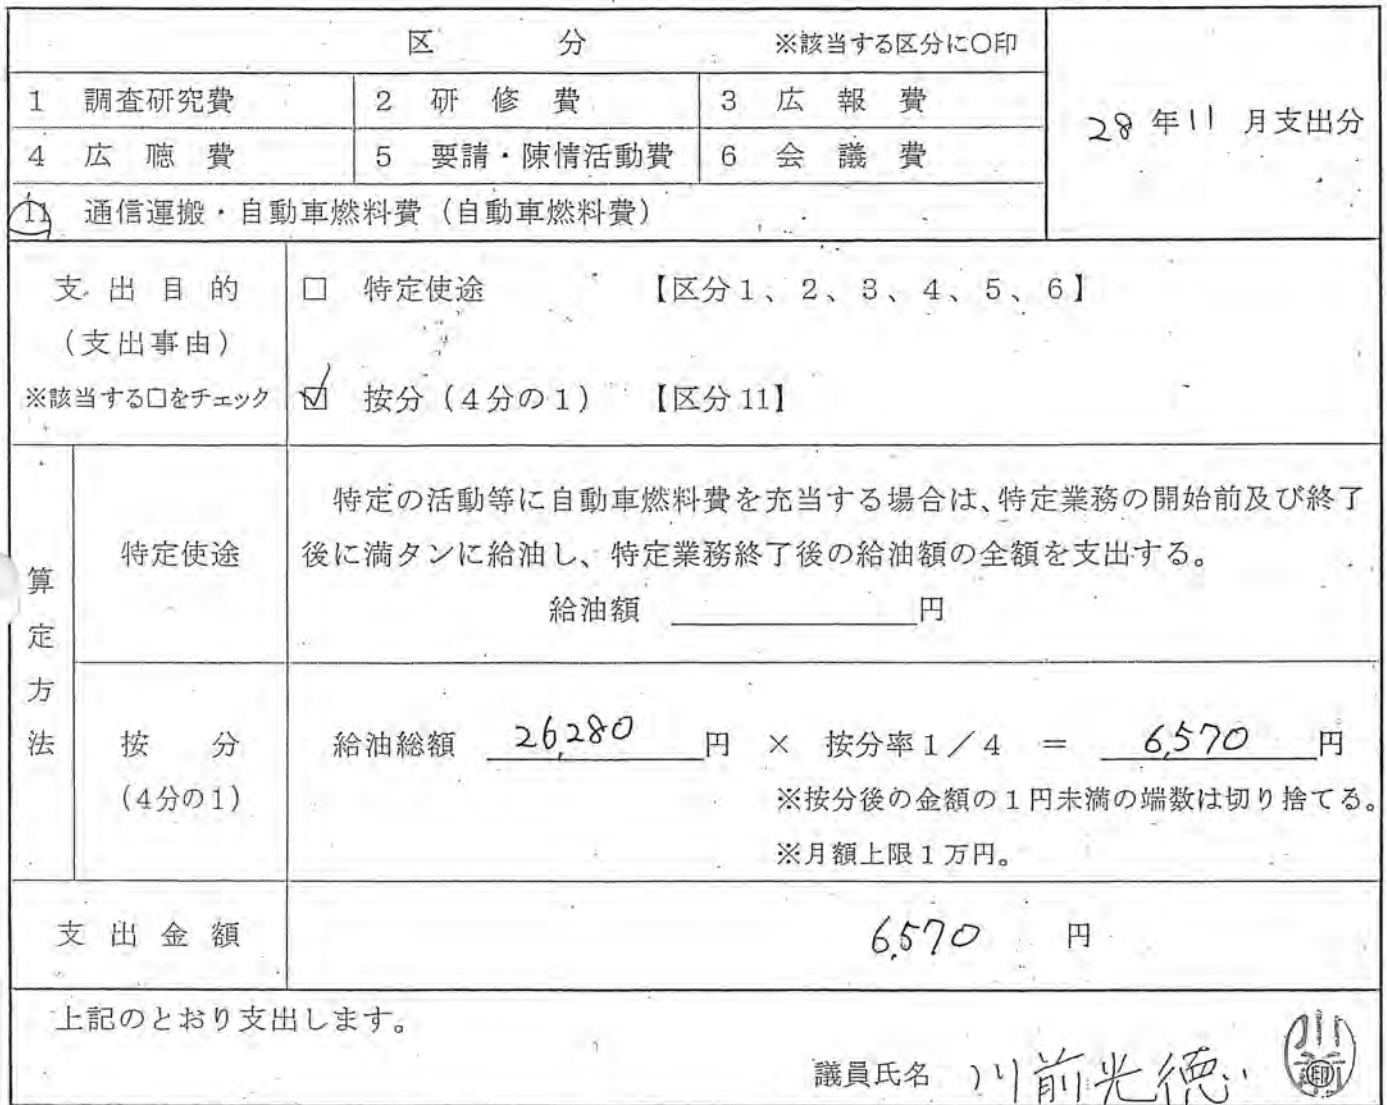 区 分 ※該当する区分に〇印
1 調査研究費 2 研修費 3 広報費
28年11月支出分
4 広聴費 5 要請・陳情活動費 6 会議費
11 通信運搬・自動車燃料費(自動車燃料費)
支出目的
(支出事由)
※該当する□をチェック
□ 特定使途 【区分1、2、3、4、5、6】
☑ 按分(4分の1) 【区分11】
算定方法
特定使途
特定の活動等に自動車燃料費を充当する場合は、特定業務の開始前及び終了
後に満タンに給油し、特定業務終了後の給油額の全額を支出する。
給油額 円
按分
(4分の1)
給油総額 26,280 円 × 按分率1/4 = 6,570 円
※按分後の金額の1円未満の端数は切り捨てる。
※月額上限1万円。
支出金額 6,570 円
上記のとおり支出します。
議員氏名 川前光徳 印